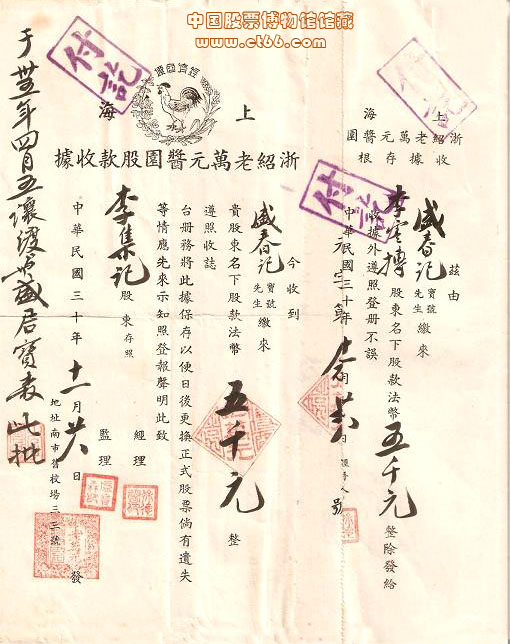 中国股票博物馆馆藏
www.ct66.com
付訖
付訖
付訖
經濟國貨
上海
浙紹老萬元醬園股款收據
上海
浙紹老萬元醬園
收據存根
茲由
盛春記 寶號先生 繳來
股東名下股款法幣 五千元 整除發給
收據外遵照登册不誤
中華民國三十年十一月 日 經手人
元字第 號
今收到
盛春記 寶號先生 繳來
貴股東名下股款法幣 五千元 整
遵照收誌
台册務將此據保存以便日後更換正式股票倘有遺失
等情應先來示知照登報聲明此致
李集記 股東存照
經理
監理
中華民國三十年 十一月 廿八 日 發
地址南市舊校場三三號
于卅五年四月五讓渡 盛君寶 此批